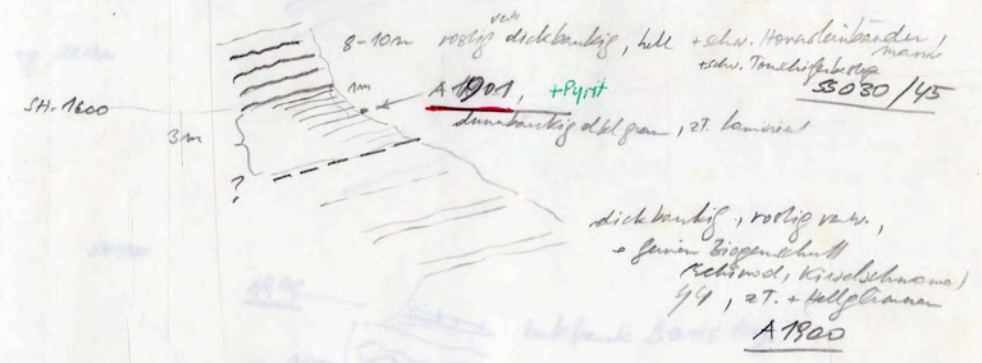 verw.
8-10m rostig dickbankig, hell + schw. Hornsteinbänder,
+ schw. Tonschiefer
SS 030/45
1m
A 1901, + Pyrit
SH. 1600
dünnbankig dkl grau, zT. laminiert
3m
?
dickbankig, rostig verw.,
feinen Biogenschutt
(Echinod, Kieselschwämme)
44, zT. + Hellglimmer
A 1900